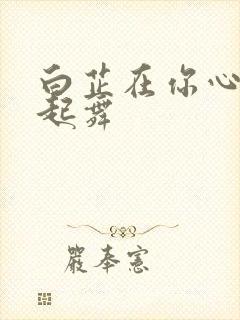 白芷在你心
起舞
嚴奉憲